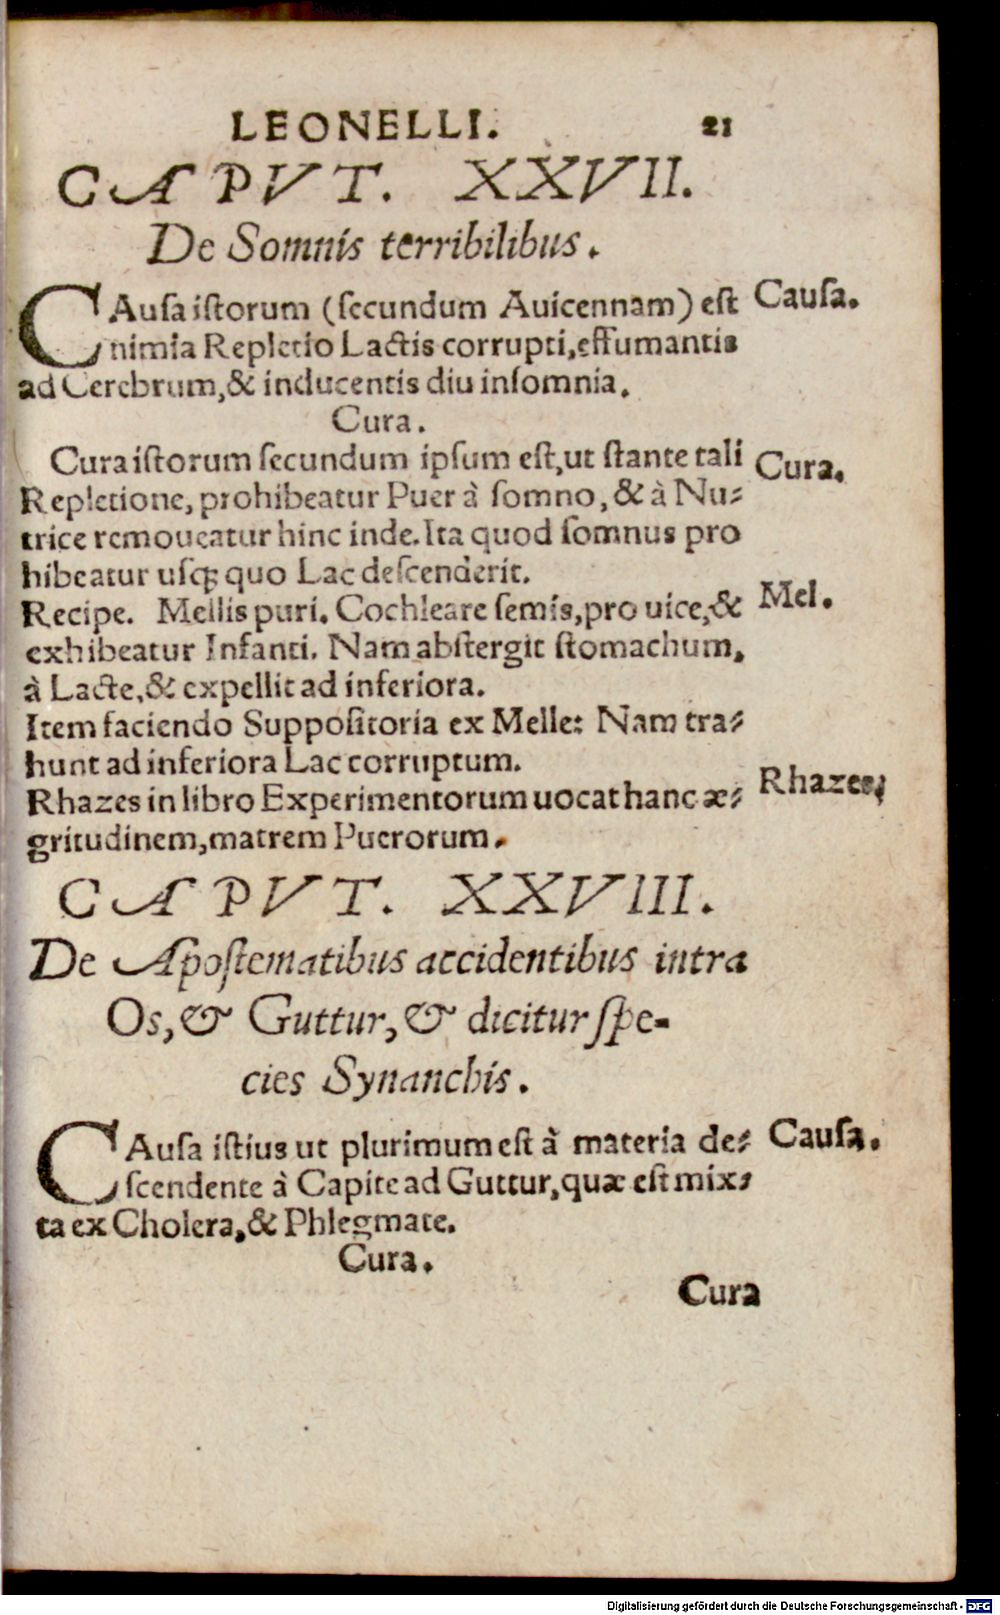 LEONELLI. 21
CAPVT. XXVII.
De Somnis terribilibus.
CAusa istorum (secundum Auicennam) est Causa.
nimia Repletio Lactis corrupti, effumantis
ad Cerebrum, & inducentis diu insomnia.
Cura.
Cura istorum secundum ipsum est, ut stante tali Cura.
Repletione, prohibeatur Puer à somno, & à Nu⸗
trice remoueatur hinc inde. Ita quod somnus pro
hibeatur usq́; quo Lac descenderit.
Recipe. Mellis puri. Cochleare semis, pro uice, & Mel.
exhibeatur Infanti. Nam abstergit stomachum,
à Lacte, & expellit ad inferiora.
Item faciendo Suppositoria ex Melle: Nam tra⸗
hunt ad inferiora Lac corruptum.
Rhazes in libro Experimentorum uocat hanc æ⸗ Rhazes,
gritudinem, matrem Puerorum.
CAPVT. XXVIII.
De Apostematibus accidentibus intra
Os, & Guttur, & dicitur spe-
cies Synanchis.
CAusa istius ut plurimum est à materia de⸗ Causa.
scendente à Capite ad Guttur, quæ est mix⸗
ta ex Cholera, & Phlegmate.
Cura.
Cura
Digitalisierung gefördert durch die Deutsche Forschungsgemeinschaft - DFG